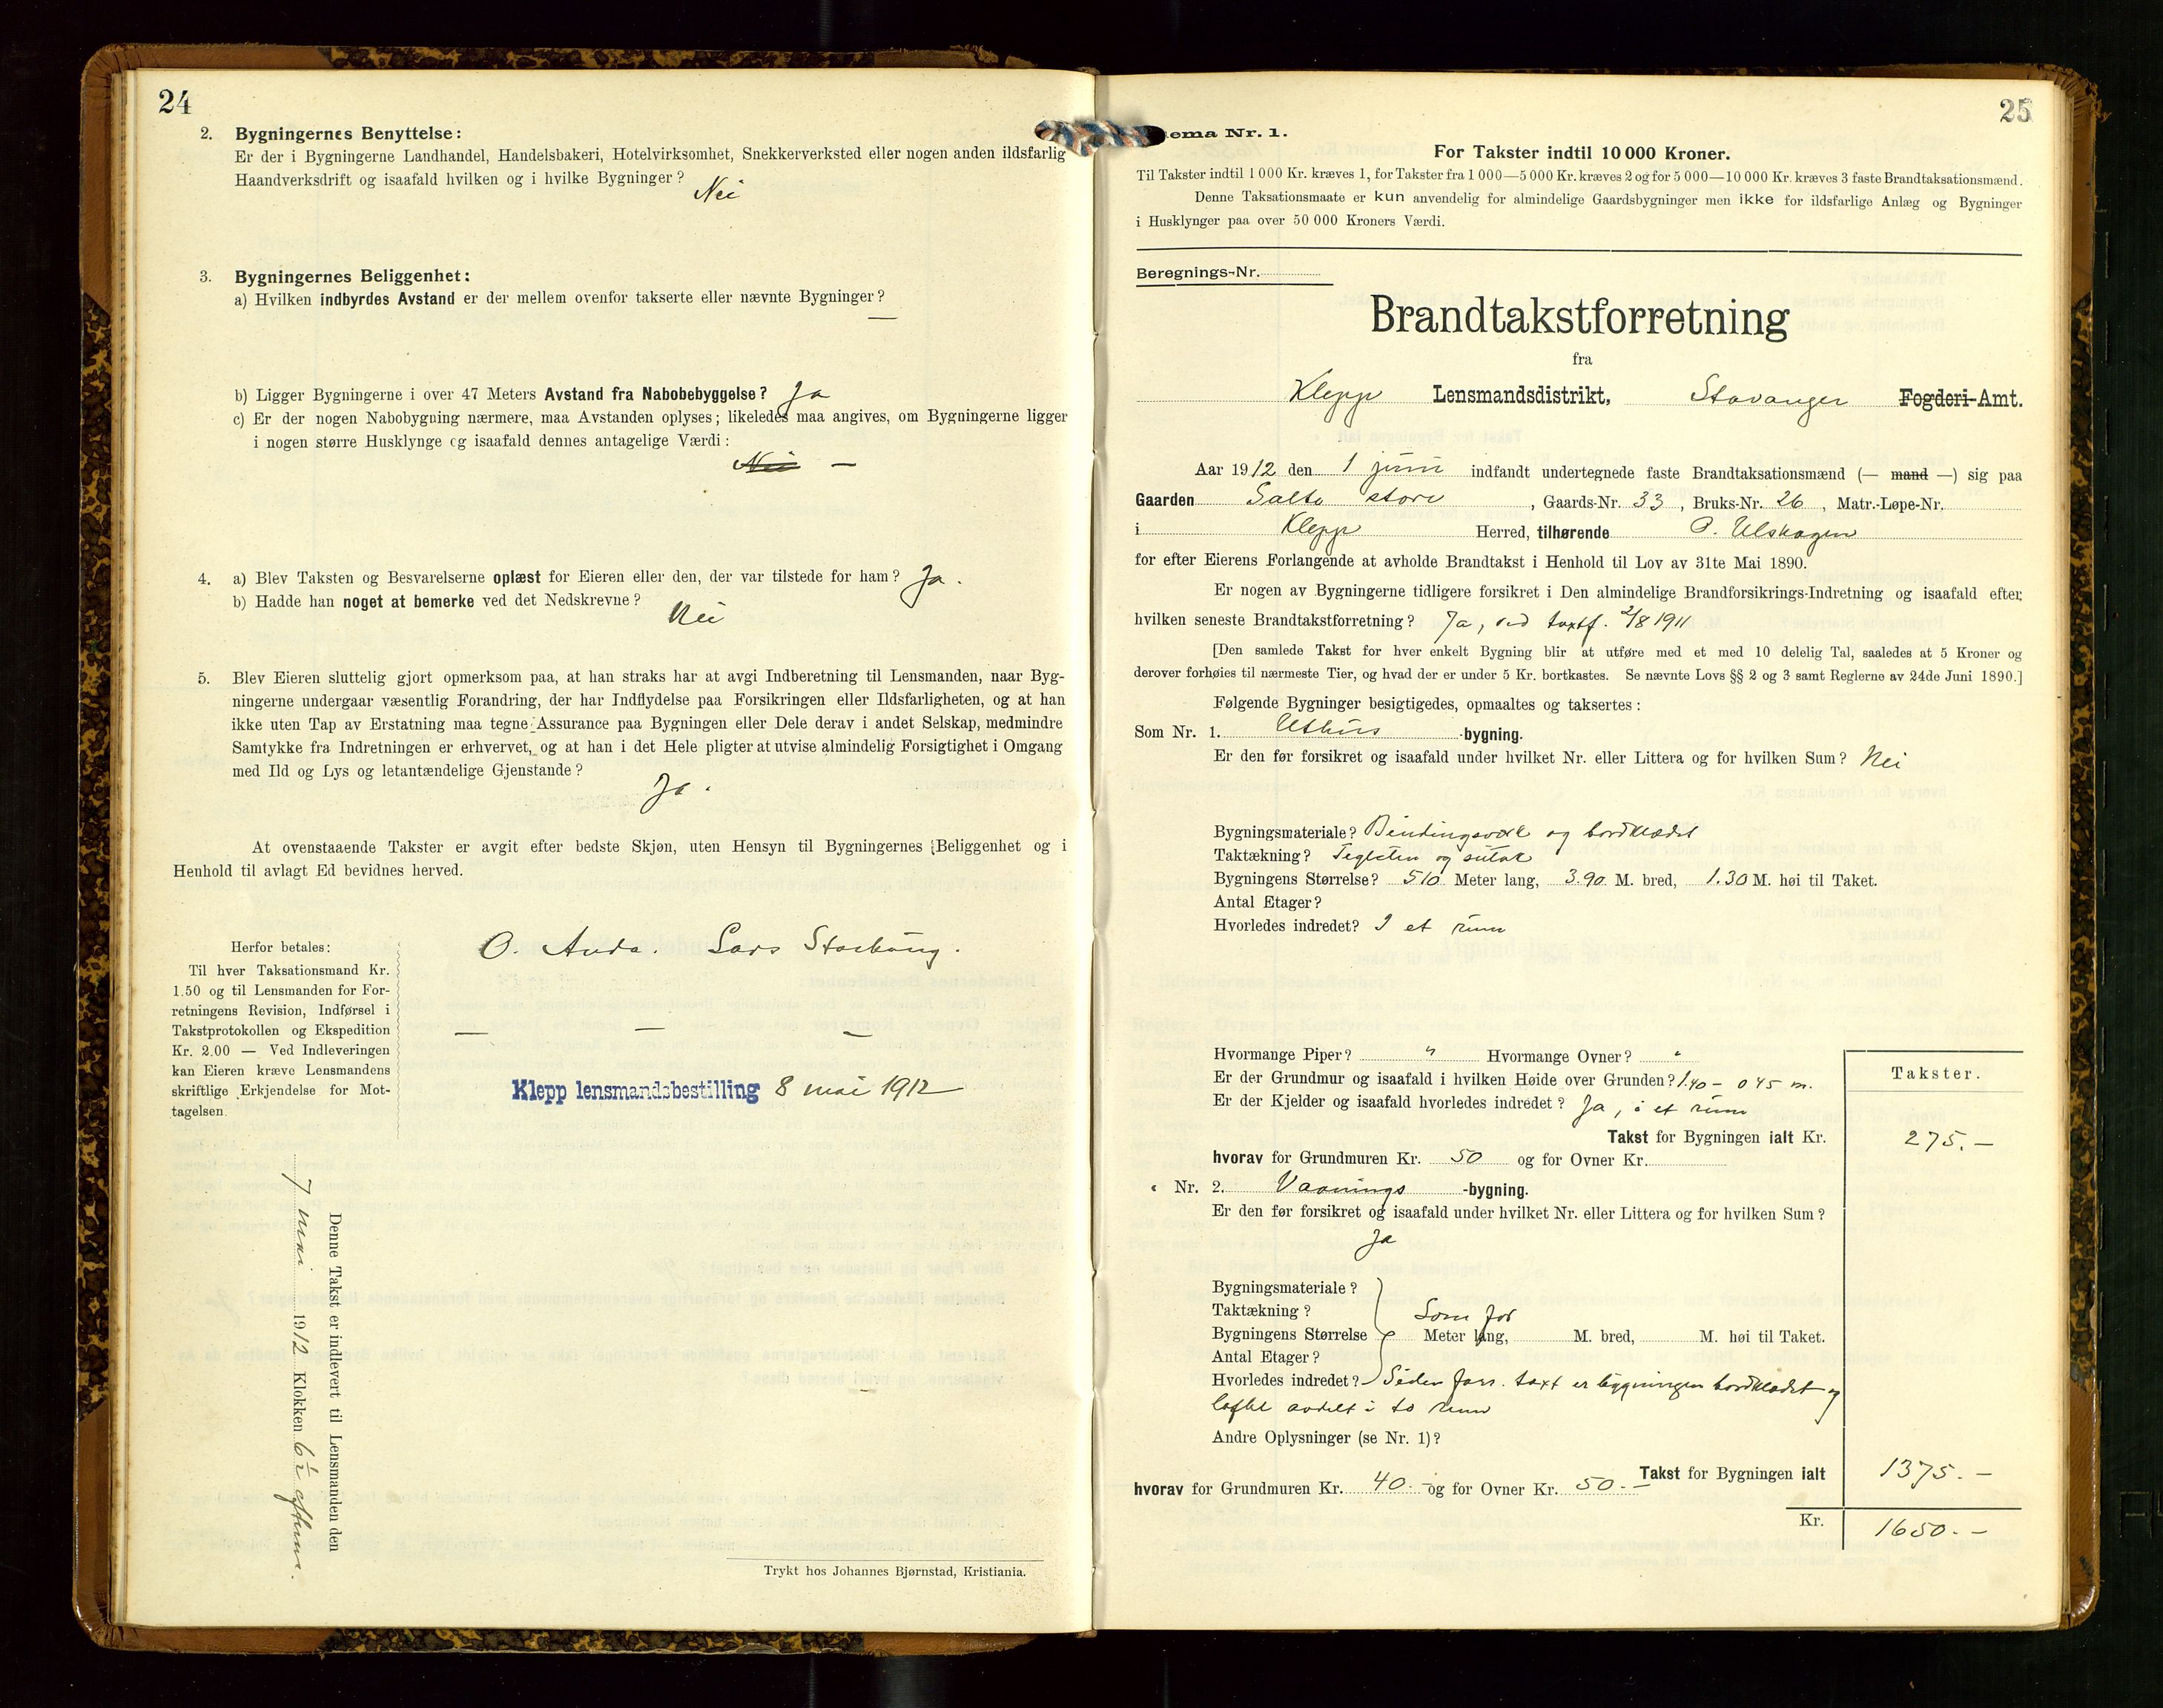 24
2. Bygningernes Benyttelse:
Er der i Bygningerne Landhandel, Handelsbakeri, Hotelvirksomhet, Snekkerverksted eller nogen anden ildsfarlig
Haandverksdrift og isaafald hvilken og i hvilke Bygninger? Nei
3. Bygningernes Beliggenhet:
a) Hvilken indbyrdes Avstand er der mellem ovenfor takserte eller nævnte Bygninger? —
b) Ligger Bygningerne i over 47 Meters Avstand fra Nabobebyggelse? Ja
c) Er der nogen Nabobygning nærmere, maa Avstanden oplyses; likeledes maa angives, om Bygningerne ligger
i nogen større Husklynge og isaafald dennes antagelige Værdi:
Nei —
4. a) Blev Taksten og Besvarelserne oplæst for Eieren eller den, der var tilstede for ham? Ja.
b) Hadde han noget at bemerke ved det Nedskrevne? Nei
5. Blev Eieren sluttelig gjort opmerksom paa, at han straks har at avgi Indberetning til Lensmanden, naar Byg-
ningerne undergaar væsentlig Forandring, der har Indflydelse paa Forsikringen eller Ildsfarligheten, og at han
ikke uten Tap av Erstatning maa tegne Assurance paa Bygningen eller Dele derav i andet Selskap, medmindre
Samtykke fra Indretningen er erhvervet, og at han i det Hele pligter at utvise almindelig Forsigtighet i Omgang
med Ild og Lys og letantændelige Gjenstande?
Ja.
At ovenstaaende Takster er avgit efter bedste Skjøn, uten Hensyn til Bygningernes Beliggenhet og i
Henhold til avlagt Ed bevidnes herved.
O. Anda. Lars Storhaug.
Herfor betales:
Til hver Taksationsmand Kr.
1.50 og til Lensmanden for For-
retningens Revision, Indførsel i
Takstprotokollen og Ekspedition
Kr. 2.00 — Ved Indleveringen
kan Eieren kræve Lensmandens
skriftlige Erkjendelse for Mot-
tagelsen.
— — —
Klepp lensmandsbestilling 8 mai 1912
Denne Takst er indlevert til Lensmanden den
7 mai 1912 Klokken 6½ efterm.
Trykt hos Johannes Bjørnstad, Kristiania.
25
ema Nr. 1.
For Takster indtil 10 000 Kroner.
Til Takster indtil 1 000 Kr. kræves 1, for Takster fra 1 000—5 000 Kr. kræves 2 og for 5 000—10 000 Kr. kræves 3 faste Brandtaksationsmænd.
Denne Taksationsmaate er kun anvendelig for almindelige Gaardsbygninger men ikke for ildsfarlige Anlæg og Bygninger
i Husklynger paa over 50 000 Kroners Værdi.
Beregnings-Nr.
Brandtakstforretning
fra
Klepp Lensmandsdistrikt, Stavanger Fogderi-Amt.
Aar 1912 den 1 juni indfandt undertegnede faste Brandtaksationsmænd (— mand —) sig paa
Gaarden Salte store, Gaards-Nr. 33, Bruks-Nr. 26, Matr.-Løpe-Nr.
i Klepp Herred, tilhørende P. Ulshagen
for efter Eierens Forlangende at avholde Brandtakst i Henhold til Lov av 31te Mai 1890.
Er nogen av Bygningerne tidligere forsikret i Den almindelige Brandforsikrings-Indretning og isaafald efter
hvilken seneste Brandtakstforretning? Ja, ved taxtf. 2/8 1911
[Den samlede Takst for hver enkelt Bygning blir at utføre med et med 10 delelig Tal, saaledes at 5 Kroner og
derover forhøies til nærmeste Tier, og hvad der er under 5 Kr. bortkastes. Se nævnte Lovs §§ 2 og 3 samt Reglerne av 24de Juni 1890.]
Følgende Bygninger besigtigedes, opmaaltes og taksertes:
Som Nr. 1. Uthus -bygning.
Er den før forsikret og isaafald under hvilket Nr. eller Littera og for hvilken Sum? Nei
Bygningsmateriale? Bindingsverk og bordklædt
Taktækning? Teglsten og sutak
Bygningens Størrelse? 510 Meter lang, 3.90 M. bred, 1.30 M. høi til Taket.
Antal Etager?
Hvorledes indredet? I et rum
Hvormange Piper? " Hvormange Ovner? "
Er der Grundmur og isaafald i hvilken Høide over Grunden? 1.40 – 0 45 m.
Er der Kjelder og isaafald hvorledes indredet? Ja, i et rum
Takster.
Takst for Bygningen ialt Kr. 275.—
hvorav for Grundmuren Kr. 50 og for Ovner Kr.
" Nr. 2. Vaanings -bygning.
Er den før forsikret og isaafald under hvilket Nr. eller Littera og for hvilken Sum?
Ja
Bygningsmateriale?
Taktækning? Som før
Bygningens Størrelse Meter lang, M. bred, M. høi til Taket.
Antal Etager?
Hvorledes indredet? Siden forr. taxt er bygningen bordklædt og
loftet avdelt i to rum
Andre Oplysninger (se Nr. 1)?
Takst for Bygningen ialt 1375.—
hvorav for Grundmuren Kr. 40.— og for Ovner Kr. 50.—
Kr. 1650.—